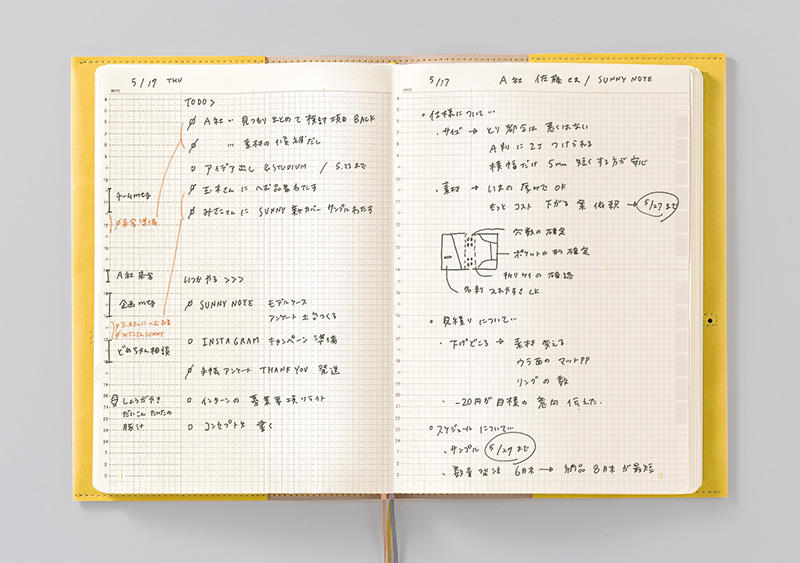 5/17 THU
DATE
TODO>
A社 〃 見つもり まとめて 検討項目 BACK
〃 素材の候補だし
アイデア出し &STUDIUM / 5.23まで
玉木さんに わたす
みさこさんに SUNNY 革カバー サンプルわたす
チームmtg
来客準備
A社 来客
企画mtg
玉木さんに
みさこさんSUNNY
どめちゃん相談
しょうがやき
だいこん たいたの
豚汁
いつかやる >>>
SUNNY NOTE モデルケース
アンケート 土台つくる
INSTAGRAM キャンペーン 準備
手帳アンケート THANK YOU 発送
インターンの 募集要項リライト
コンセプト文 書く
5/17 A社 佐藤さま / SUNNY NOTE
DATE
仕様について…
・サイズ → とり都合は悪くはない
A判に 2コ つけられる
横幅だけ 5mm 短くする方が安心
・素材 → いまの厚みでOK
もっと コスト 下がる 案 依頼 → 5/27まで
穴数の確定
ポケットの形 確定
折りケイの確認
名刺 入れやすさ CK
見積りについて…
・下げどころ → 素材 変える
ウラ面の マットPP
リングの数
・-20円が目標の意向 伝えた.
スケジュールについて…
・サンプル 5/29まで
・数量 発注 6月末 → 納品 8月末が最短